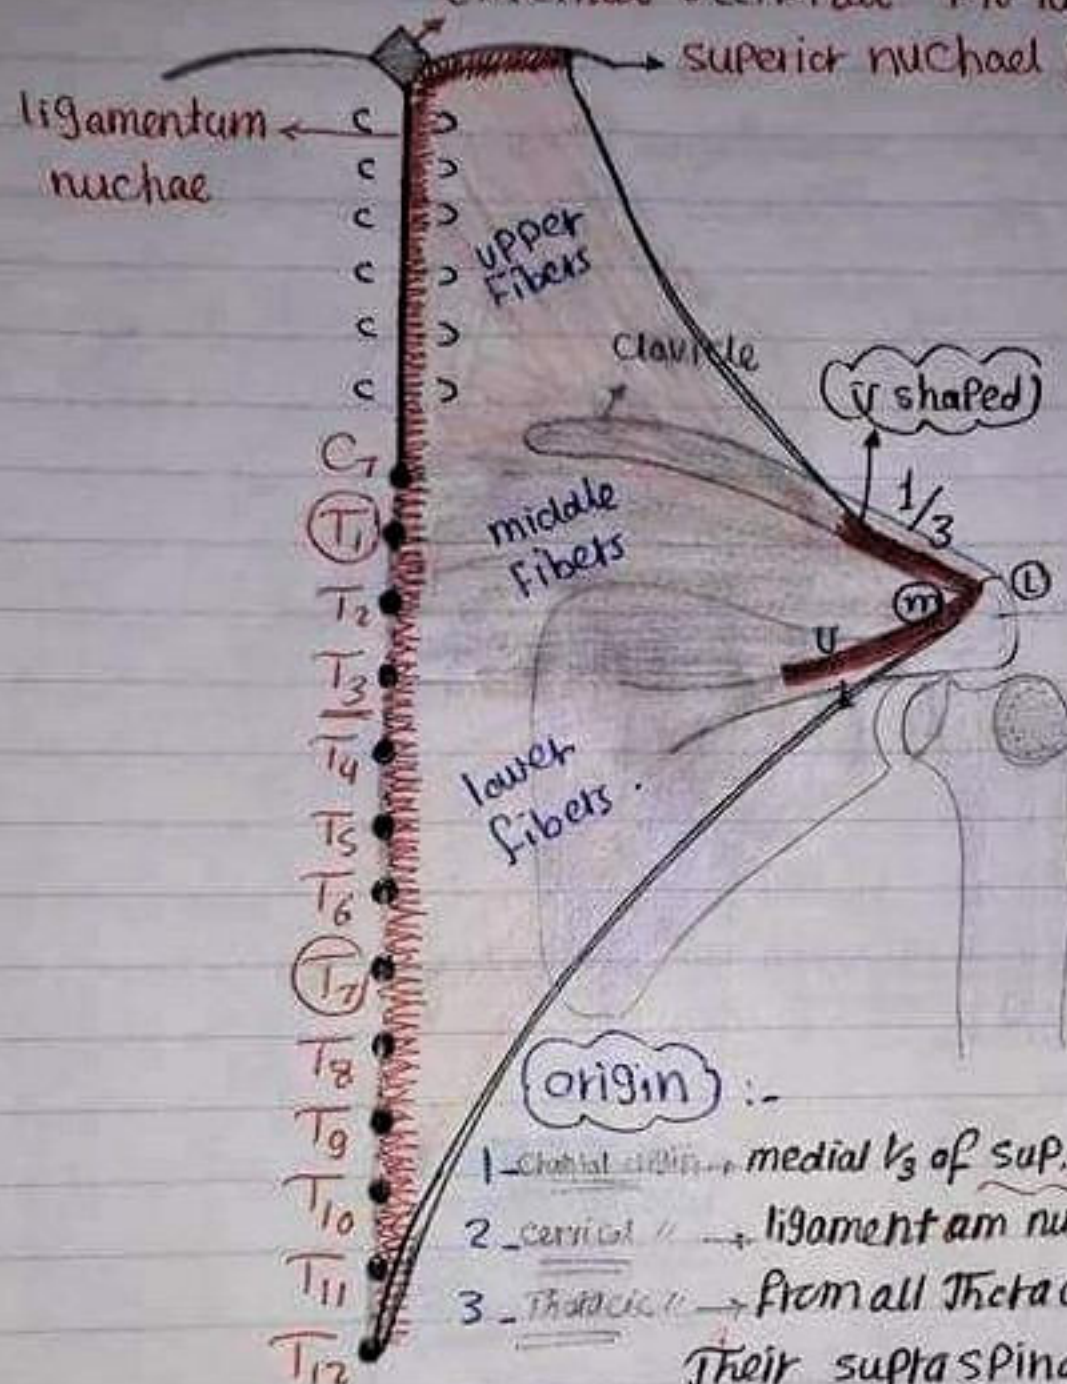 superior nuchael
ligamentum
nuchae
c
c
c
c
c
c
upper
fibers
clavicle
(v shaped)
1/3
C7
T1
middle
fibers
m
L
U
L
T2
T3
T4
lower
fibers
T5
T6
T7
T8
T9
T10
T11
T12
origin :-
1 - medial 1/3 of sup.
2 - cervical " → ligamentam nu
3 - Thoracic " → from all Thorac
Their supraspin